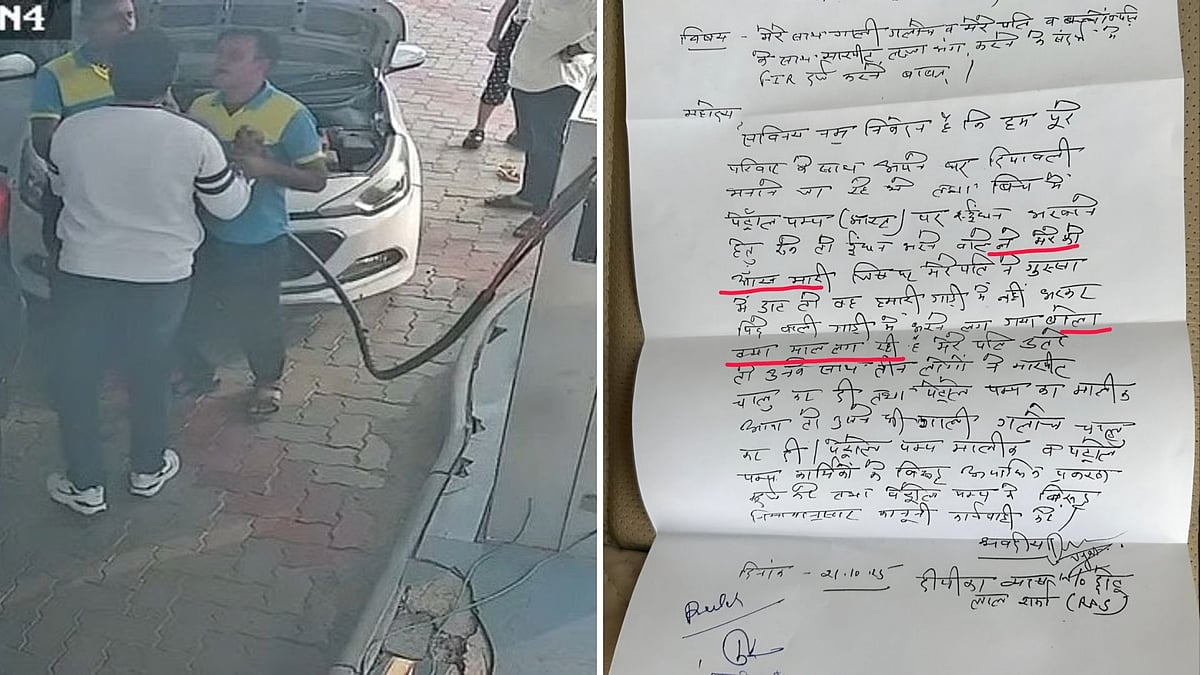 N4
विषय - मेरे साथ गाली गलोच व मेरे पति व
के साथ मारपीट, लज्जा भंग करने के संदर्भ में
FIR दर्ज करने बाबत् ।
महोदय,
सविनय नम्र निवेदन है कि हम पूरे
परिवार के साथ अपने घर दिपावली
मनाने जा रहे थे तथा बिच में
पेट्रोल पम्प पर ईंधन भरवाने
हेतु रुके तो ईंधन भरने वाले ने मेरे को
आंख मारी जिस पर मेरे पति ने गुस्सा
में डाट तो वह हमारी गाड़ी में नहीं भरकर
पिछे वाली गाड़ी में भरने लग गया बोला
क्या माल लग रही है मेरे पति उतरे
तो उनके साथ तीन लोगों ने मारपीट
चालु कर दी तथा पेट्रोल पम्प का मालीक
आया तो उसने भी गाली गलोच चालू
कर दी । पेट्रोल पम्प मालीक व पेट्रोल
पम्प कार्मिकों के विरुद्ध अपराधिक प्रकरण
दर्ज करे तथा पेट्रोल पम्प के विरुद्ध
नियमानुसार कानूनी कार्यवाही करे
भवदीय
दिनांक - 21.10.25
दीपिका व्यास W/o छोटू
लाल शर्मा (RAS)